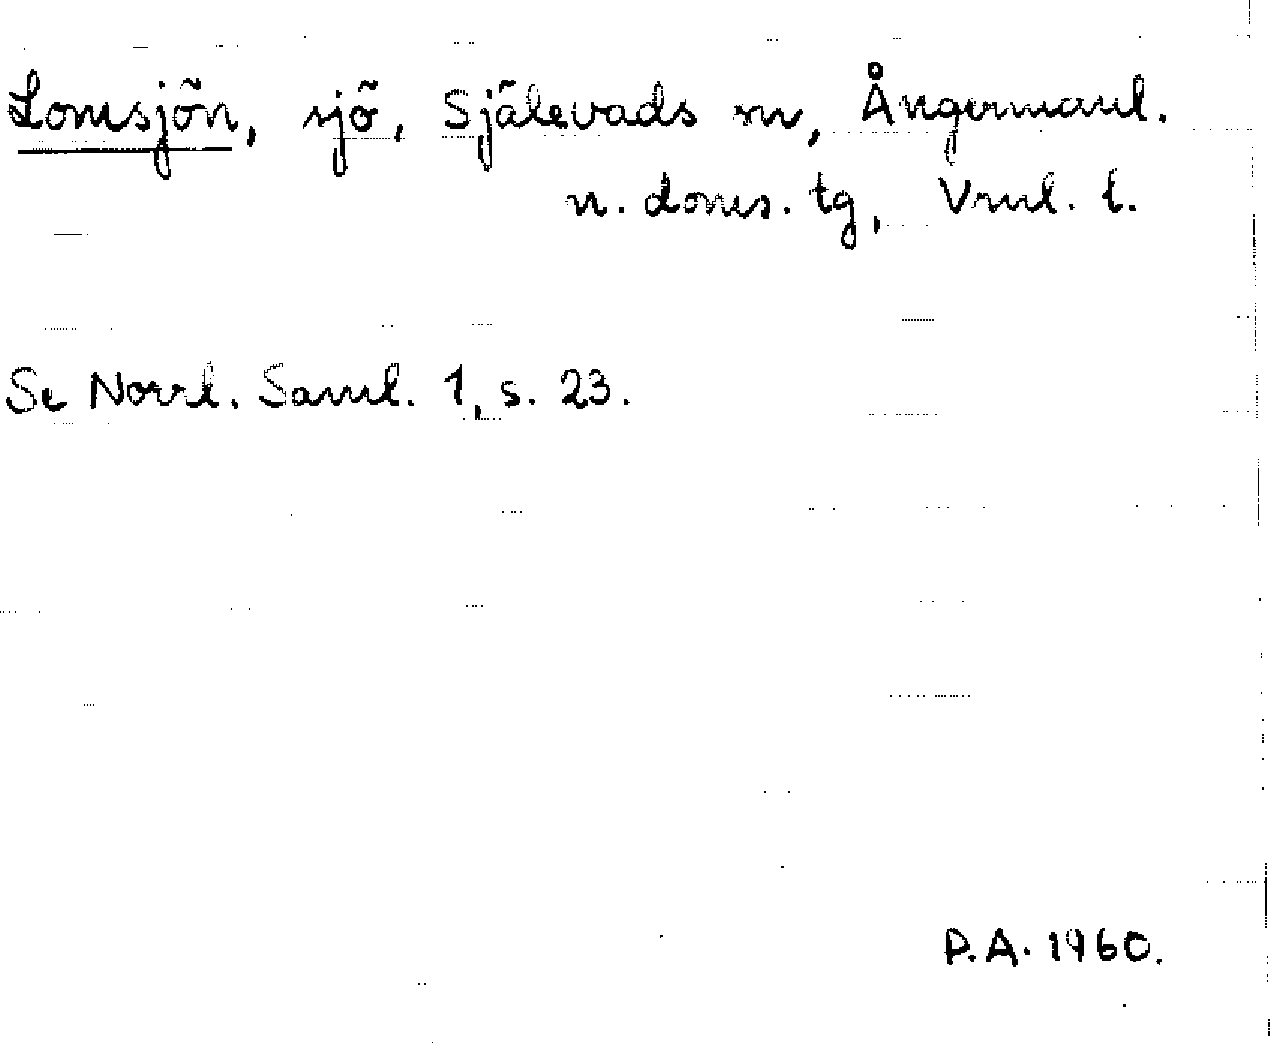 Lomsjön, sjö, Själevads sn, Ångermanl.
n. doms. tg, Vnul. l.
Se Norrl. Saml. 1, s. 23.
P.A. 1960.